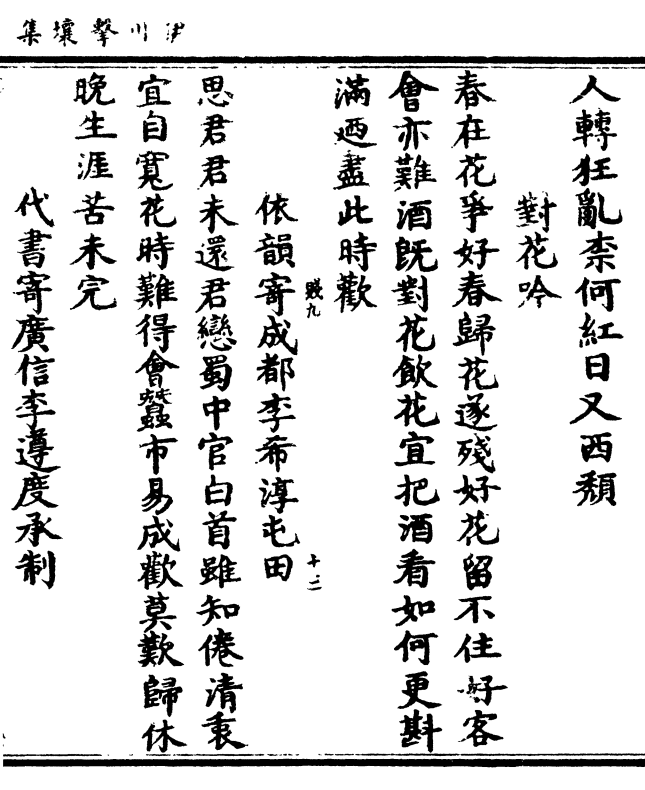 伊川擊壤集
人轉狂亂柰何紅日又西頹
對花吟
春在花爭好春歸花遂殘好花留不住好客
會亦難酒旣對花飲花宜把酒看如何更斟
滿迺盡此時歡
賤九
十二
依韻寄成都李希淳屯田
思君君未還君戀蜀中官白首雖知倦淸衷
宜自寬花時難得會蠶市易成歡莫歎歸休
晚生涯苦未完
代書寄廣信李遵度承制